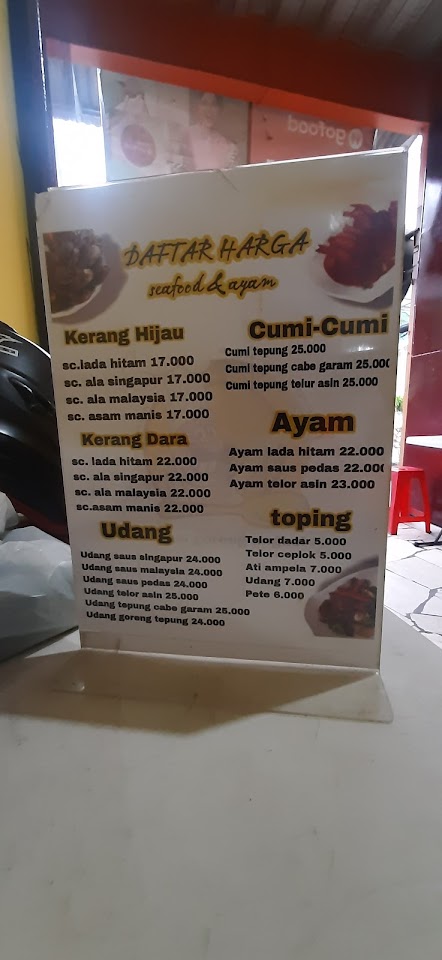 gofood
DAFTAR HARGA
seafood & ayam
Kerang Hijau
sc.lada hitam 17.000
sc. ala singapur 17.000
sc. ala malaysia 17.000
sc. asam manis 17.000
Kerang Dara
sc. lada hitam 22.000
sc. ala singapur 22.000
sc. ala malaysia 22.000
sc.asam manis 22.000
Udang
Udang saus singapur 24.000
Udang saus malaysia 24.000
Udang saus pedas 24.000
Udang telor asin 25.000
Udang tepung cabe garam 25.000
Udang goreng tepung 24.000
Cumi-Cumi
Cumi tepung 25.000
Cumi tepung cabe garam 25.000
Cumi tepung telur asin 25.000
Ayam
Ayam lada hitam 22.000
Ayam saus pedas 22.000
Ayam telor asin 23.000
toping
Telor dadar 5.000
Telor ceplok 5.000
Ati ampela 7.000
Udang 7.000
Pete 6.000